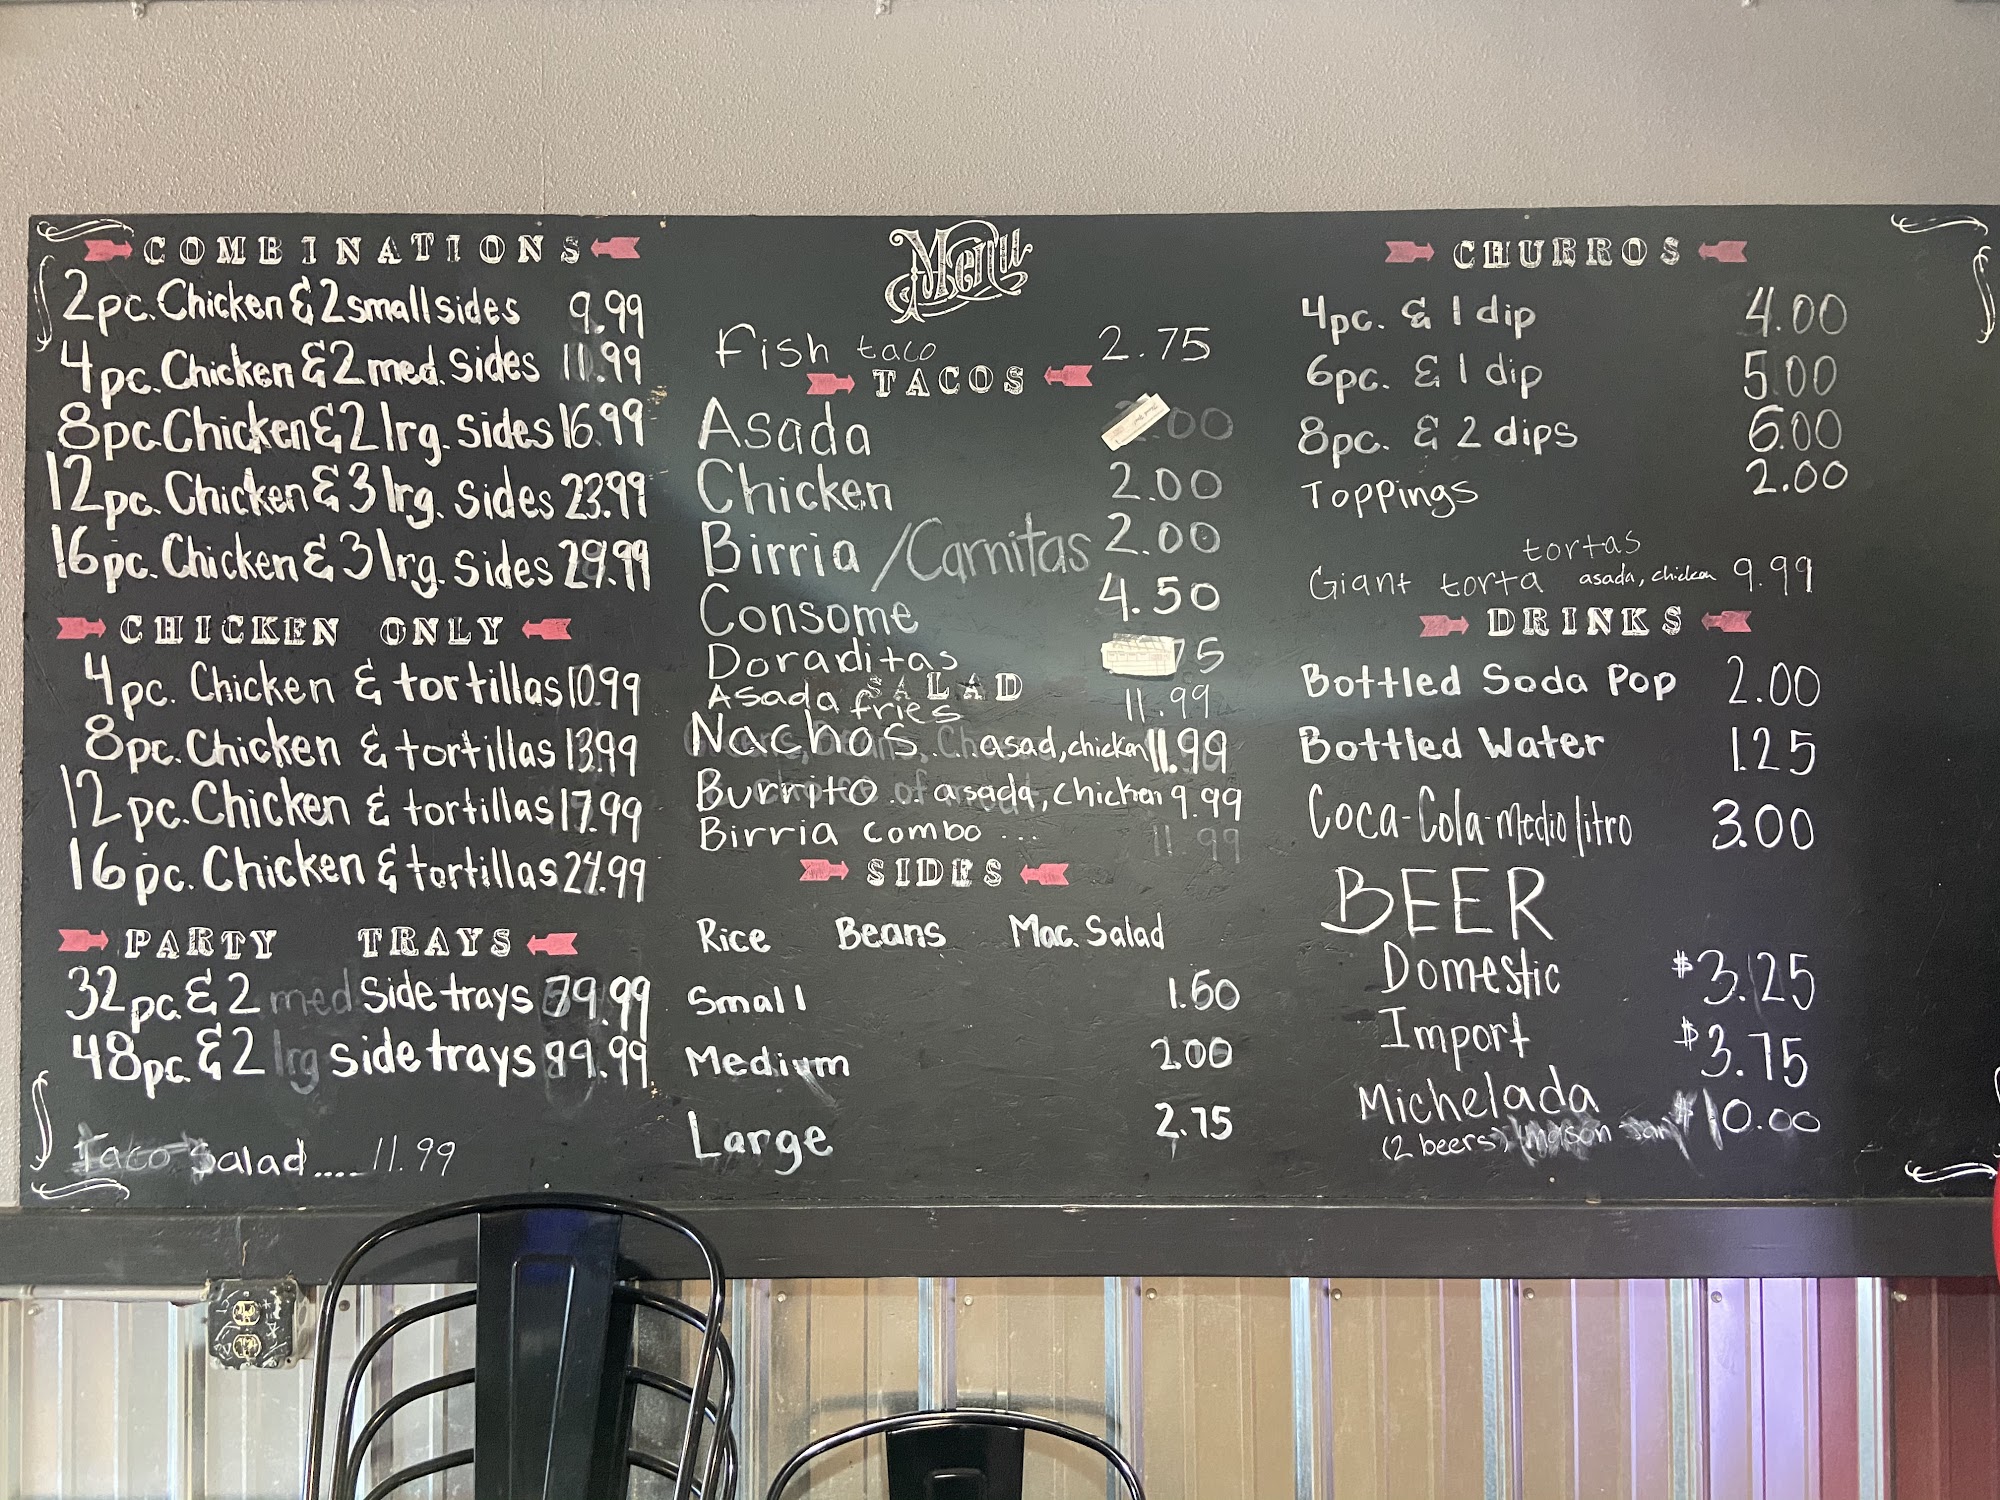 COMBINATIONS
2pc. Chicken & 2 small sides 9.99
4pc. Chicken & 2 med. Sides 11.99
8pc Chicken & 2 lrg. Sides 16.99
12pc. Chicken & 3 lrg. Sides 23.99
16pc. Chicken & 3 lrg. Sides 29.99
CHICKEN ONLY
4pc. Chicken & tortillas 10.99
8pc. Chicken & tortillas 13.99
12pc. Chicken & tortillas 17.99
16pc. Chicken & tortillas 24.99
PARTY TRAYS
32pc. & 2 med side trays 79.99
48pc. & 2 lrg side trays 89.99
Taco Salad.... 11.99
Menu
Fish taco 2.75
TACOS
Asada .00
Chicken 2.00
Birria / Carnitas 2.00
Consome 4.50
Doraditas 75
SALAD
Asada fries 11.99
Nachos... asad, chicken 11.99
Burrito... asada, chicken 9.99
Birria combo ... 11.99
SIDES
Rice Beans Mac. Salad
Small 1.50
Medium 2.00
Large 2.75
CHURROS
4pc. & 1 dip 4.00
6pc. & 1 dip 5.00
8pc. & 2 dips 6.00
Toppings 2.00
tortas
Giant torta asada, chicken 9.99
DRINKS
Bottled Soda Pop 2.00
Bottled Water 1.25
Coca-Cola-Medio litro 3.00
BEER
Domestic $3.25
Import $3.75
Michelada $10.00
(2 beers)